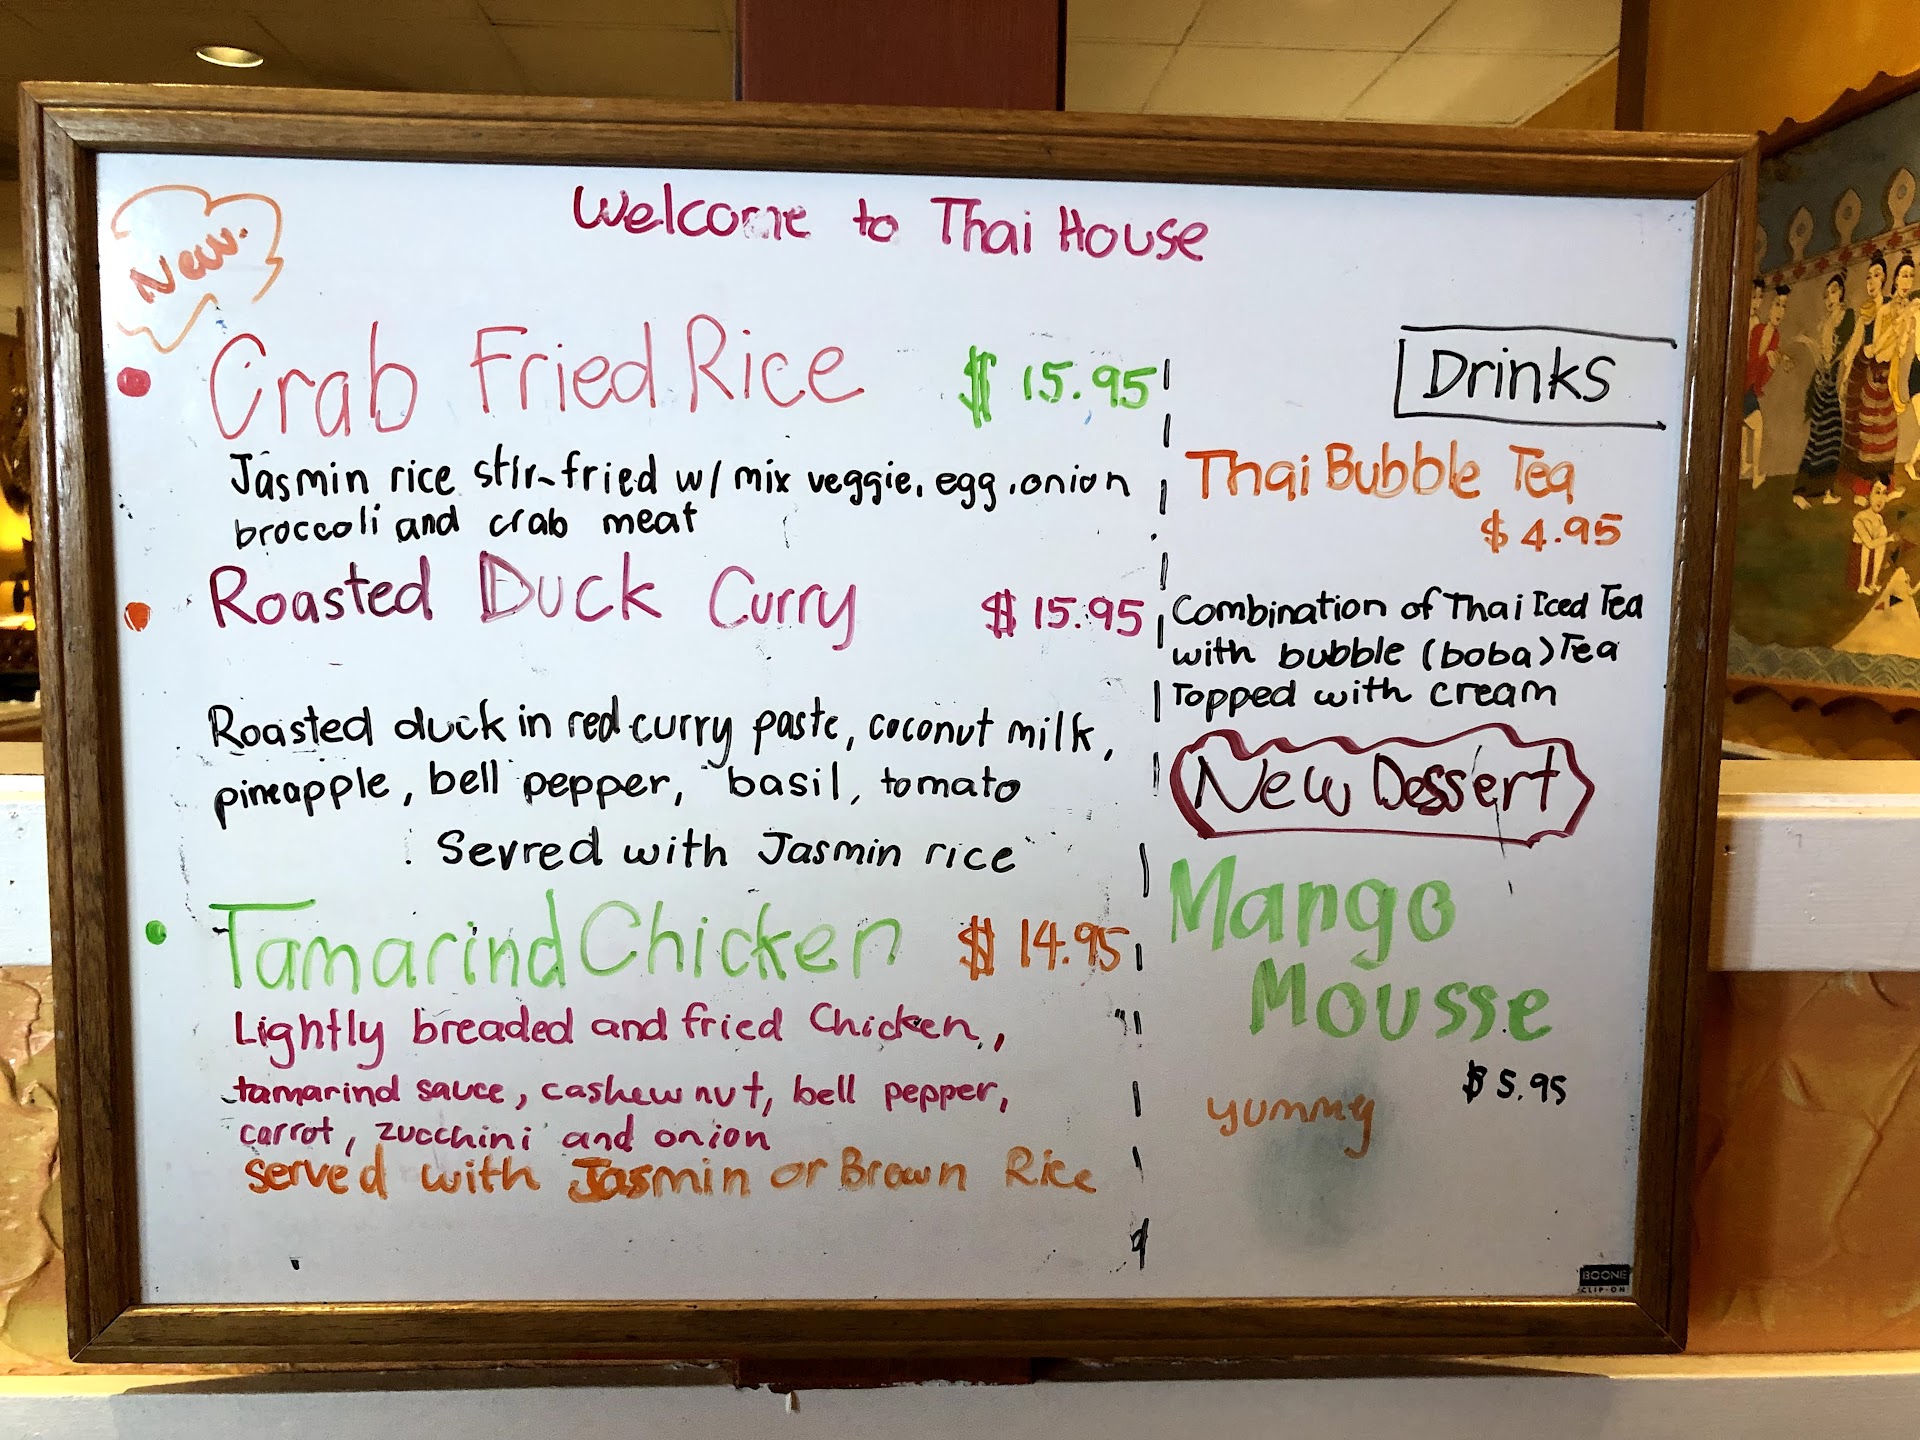 Welcome to Thai House
New.
Crab Fried Rice $15.95
Jasmin rice stir-fried w/ mix veggie, egg, onion
broccoli and crab meat
Roasted Duck Curry $15.95
Roasted duck in red curry paste, coconut milk,
pineapple, bell pepper, basil, tomato
Sevred with Jasmin rice
Tamarind Chicken $14.95
Lightly breaded and fried Chicken,
tamarind sauce, cashew nut, bell pepper,
carrot, zucchini and onion
served with Jasmin or Brown Rice
Drinks
Thai Bubble Tea
$4.95
Combination of Thai Iced Tea
with bubble (boba) Tea
Topped with cream
New Dessert
Mango
Mousse
$5.95
yummy
BOONE
CLIP-ON